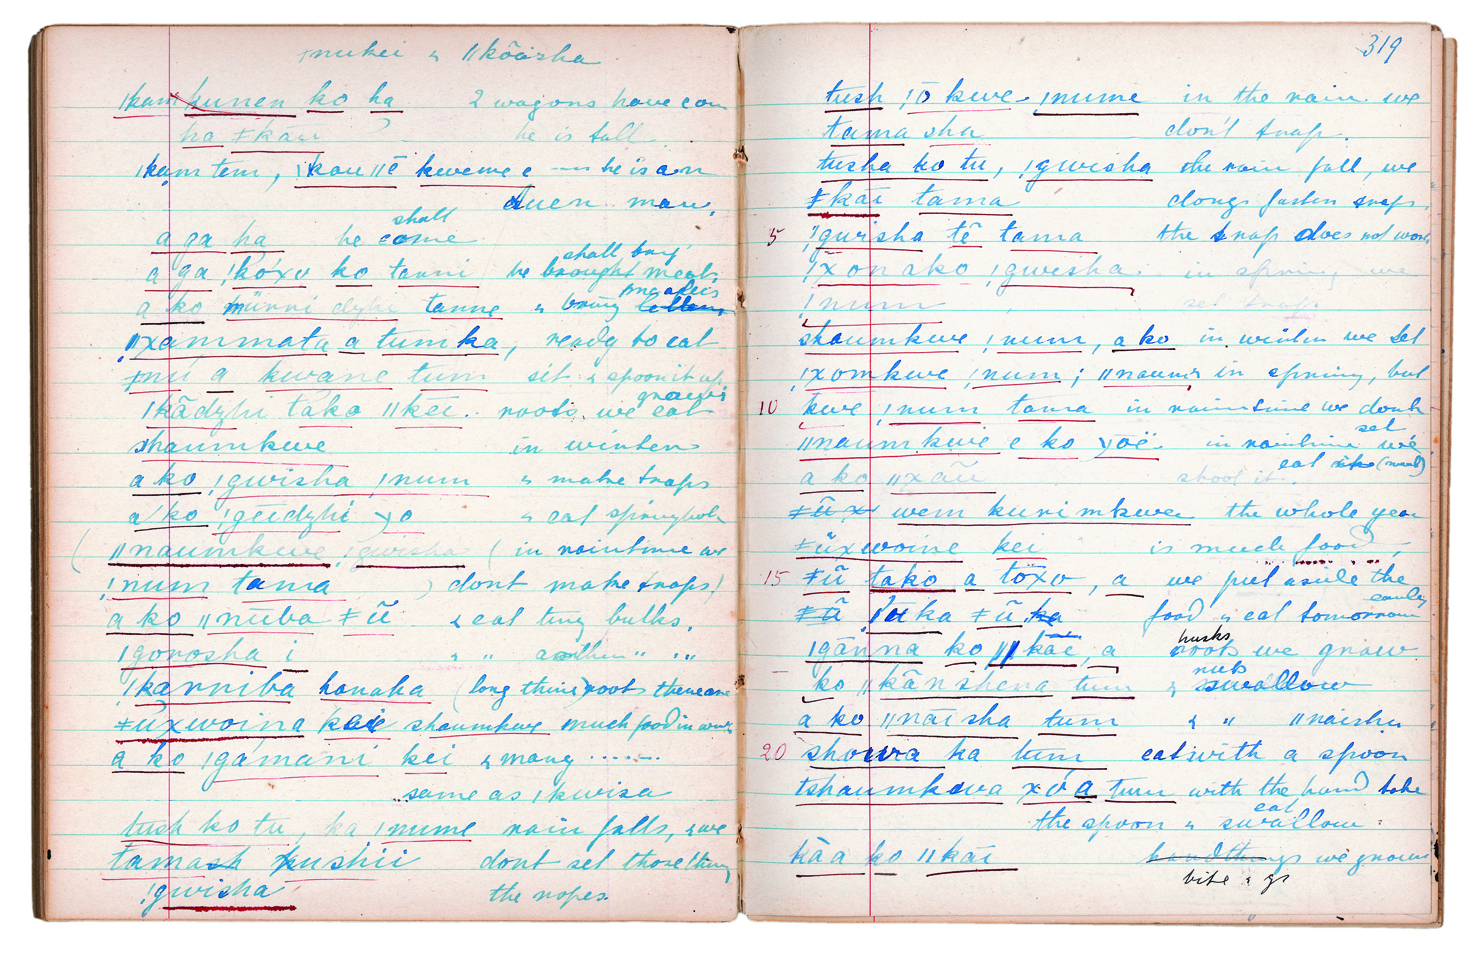 ǀnukei & ǁkõaisha
ǀkam kunen ko ha 2 wagons have com
ha ǂkau he is tall
ǀkam tem, ǀkau ǁē kweme e — he is an
Auen man.
a ga ha he come shall
a ga ǀkóxo ko tanni he brought meat. shall bury
a ko mürri dzhi tanne & bring mealies
ǁxammata a tumka, ready to eat
ǂnú a kwane tum sit & spoon it up
ǀkādzhi tako ǁkei.. roots, we eat gnaw
shaumkwe in winter
a ko ǃgwisha ǃnum & make traps
a ko, ǃgēidzhi yo & eat springbok
( ǁnaumkwe, ǃgwisha ( in raintime we
ǃnum tama ) dont make traps)
a ko ǁnūba ǂũ & eat tiny bulbs.
ǀgorosha i & " another " "
ǃkanniba hanaha (long thin) roots there are
ǂũxwoina kei shaumkwe much food in winter
a ko ǃgámani kei & many ......
same as ǃkwisa
tush ko tu, ka ǃnume rain falls, & we
tamash kushii dont set those thing
ǃgwisha the ropes.
319
tush ǃō kwe ǃnume in the rain we
tama sha don't trap.
tusha ko tu, ǃgwisha the rain fall, we
ǂkāi tama dongs fasten traps.
5 ǃgwisha tē tama the trap does not work
ǃxonako ǃgwisha in spring we
ǃnum set traps
shaumkwe ǃnum, a ko in winter we set
ǃxomkwe ǃnum; ǁnaum in spring, but
10 kwe ǃnum tama in raintime we dont set
ǁnaumkwe e ko yōë in raintime we eat (meat)
a ko ǁxāũ shoot it.
ǂũ x wem kurimkwe the whole year
ǂũxwoine kei is much food,
15 ǂũ tako a tōxo, a we put aside the
ǂũ ǀuka ǂũ ka food & eat tomorrow early
ǀgānna ko ǁkāe, a roots we gnaw husks
ko ǁkānshena tum & swallow nuts
a ko ǁnāisha tum & " ǁnaishu
20 showa ka tum eat with a spoon
tshaumkwa xóa tum with the hand take
the spoon & swallow eat
kāa ko ǁkāi hand things we gnaw
bite & go